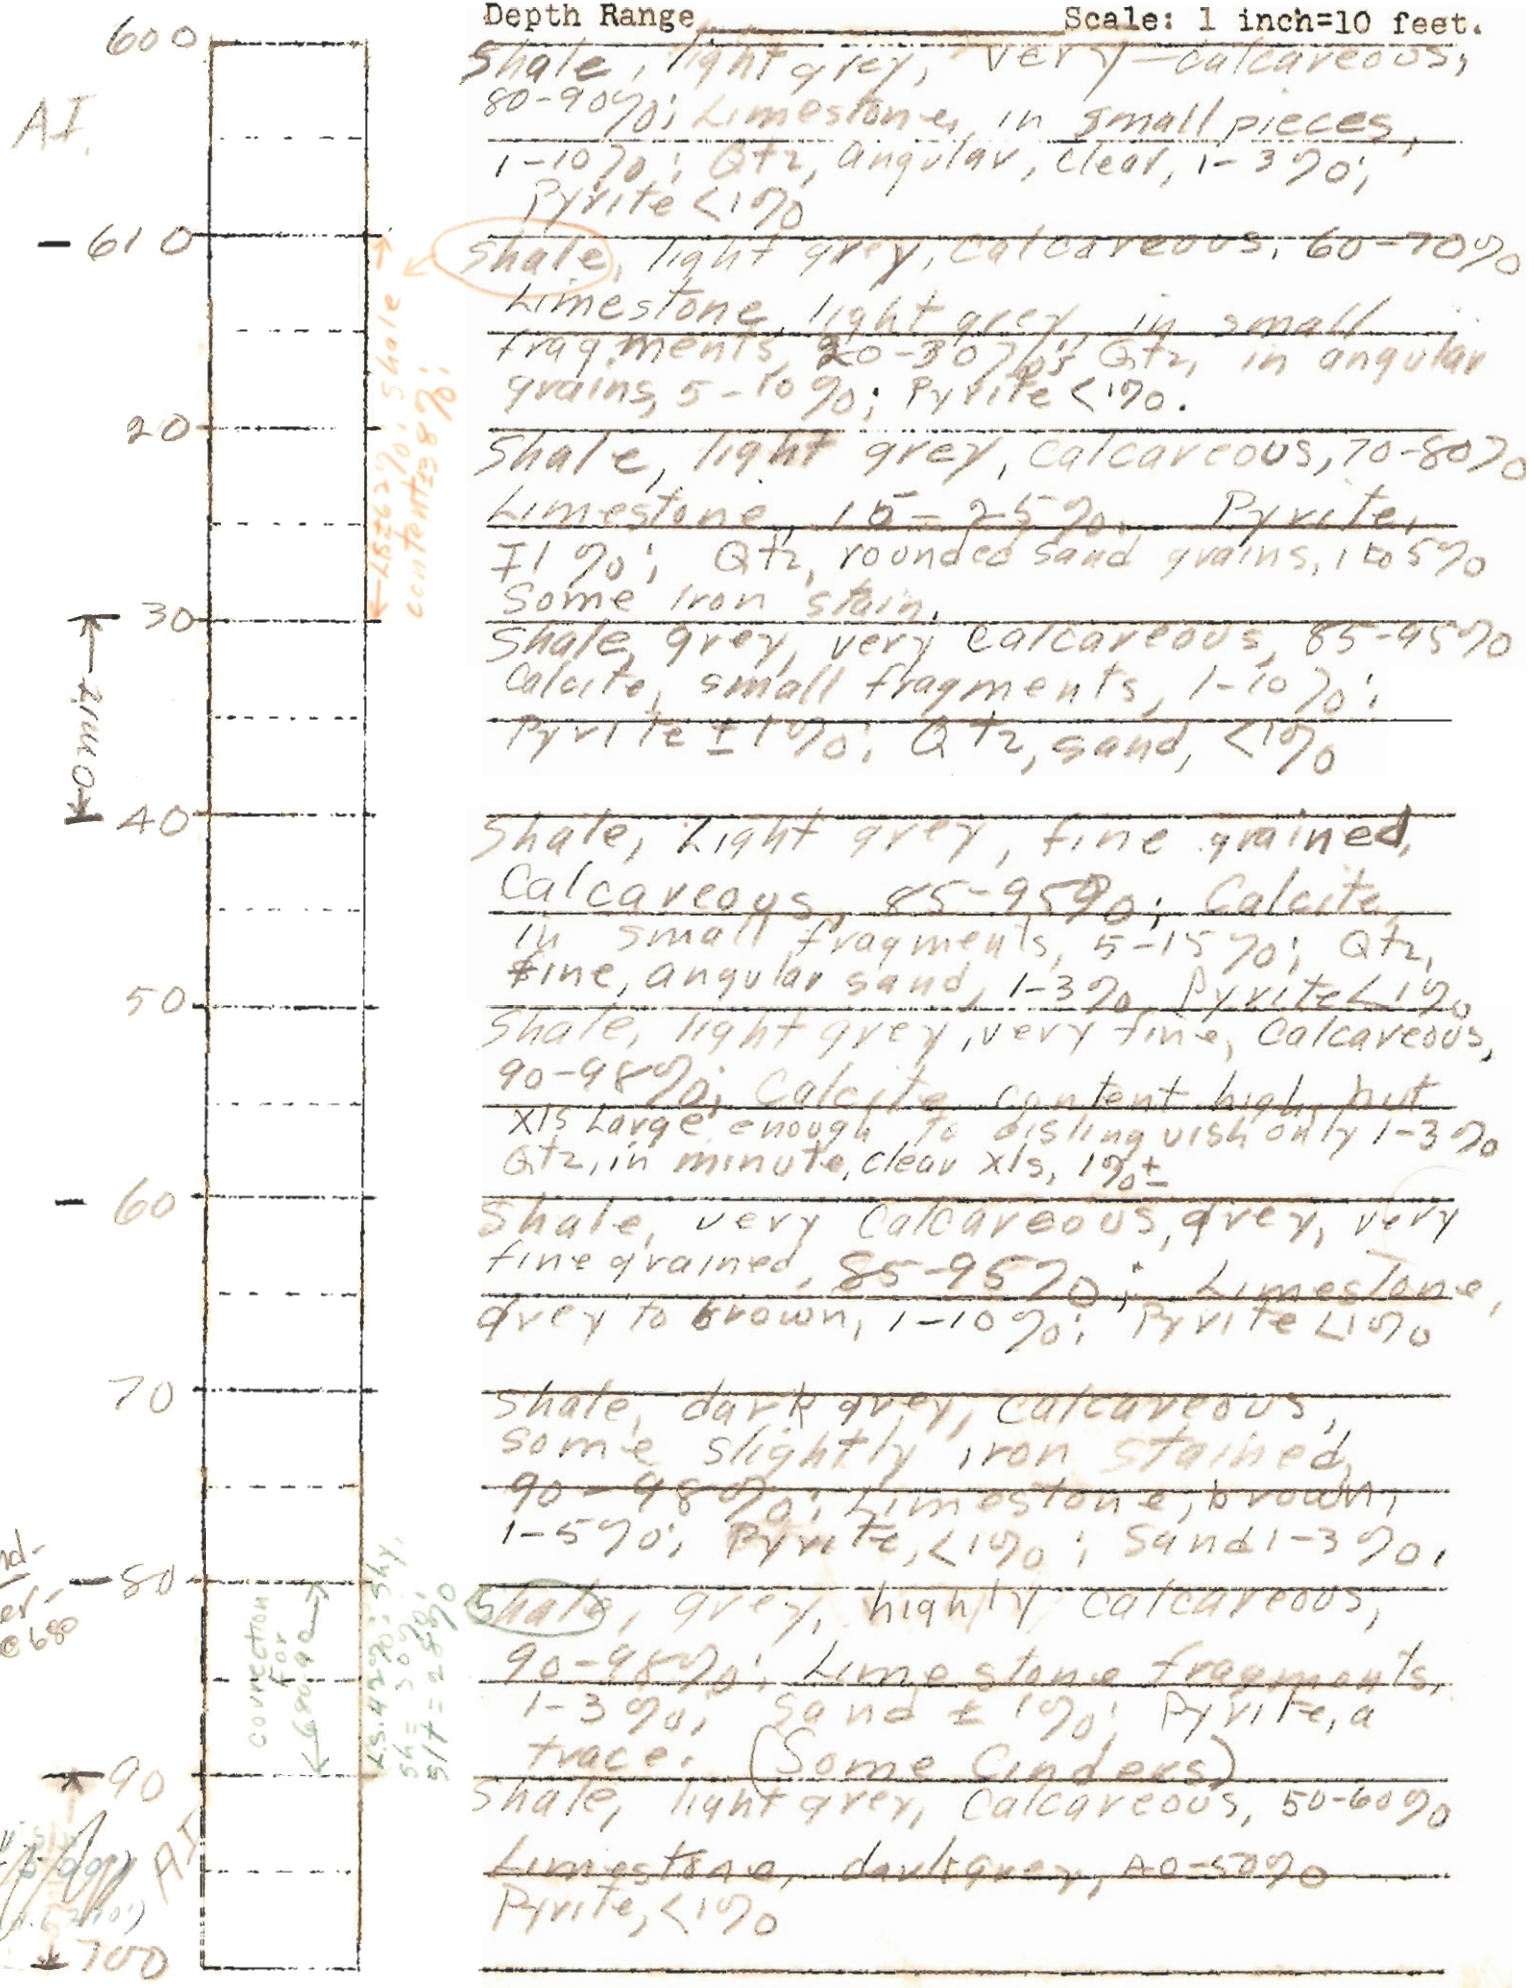 Depth Range Scale: 1 inch=10 feet.
600
Shale, light grey, very calcareous,
80-90%; Limestone, in small pieces,
AI.
1-10%; Qtz, angular, clear, 1-3%;
Pyrite <1%
- 610
Shale, light grey, calcareous, 60-70%
Limestone, light grey, in small
fragments, 20-30%; Qtz, in angular
grains, 5-10%; Pyrite <1%.
← LS ±62%; shale →
content ±38%;
20
Shale, light grey, calcareous, 70-80%
Limestone, 15-25%; Pyrite,
±1%; Qtz, rounded sand grains, 1 to 5%
Some iron stain.
30
Shale, grey, very calcareous, 85-95%
Calcite, small fragments, 1-10%;
Pyrite ±1%; Qtz, sand, <1%
←omit→
40
Shale, Light grey, fine grained,
Calcareous, 85-95%; Calcite,
in small fragments, 5-15%; Qtz,
fine, angular sand, 1-3% Pyrite <1%
50
Shale, light grey, very fine, calcareous,
90-98%; Calcite content high, but
xls Large enough to distinguish only 1-3%
Qtz, in minute, clear xls, 1%±
- 60
Shale, very calcareous, grey, very
fine grained, 85-95%; Limestone,
grey to brown, 1-10%; Pyrite <1%
70
Shale, dark grey, calcareous,
some slightly iron stained,
90-98%; Limestone, brown,
1-5%; Pyrite, <1%; Sand 1-3%.
- 80
@ 680
Shale, grey, highly calcareous,
90-98%; Limestone fragments,
1-3%; Sand ± 1%; Pyrite, a
trace. (Some Cinders)
connection
for
←680-90→
LS. 42%; shy.
sh = 30%;
slt = 28%
90
Shale, light grey, Calcareous, 50-60%
Limestone, dark grey, 40-50%
Pyrite, <1%
AI
700